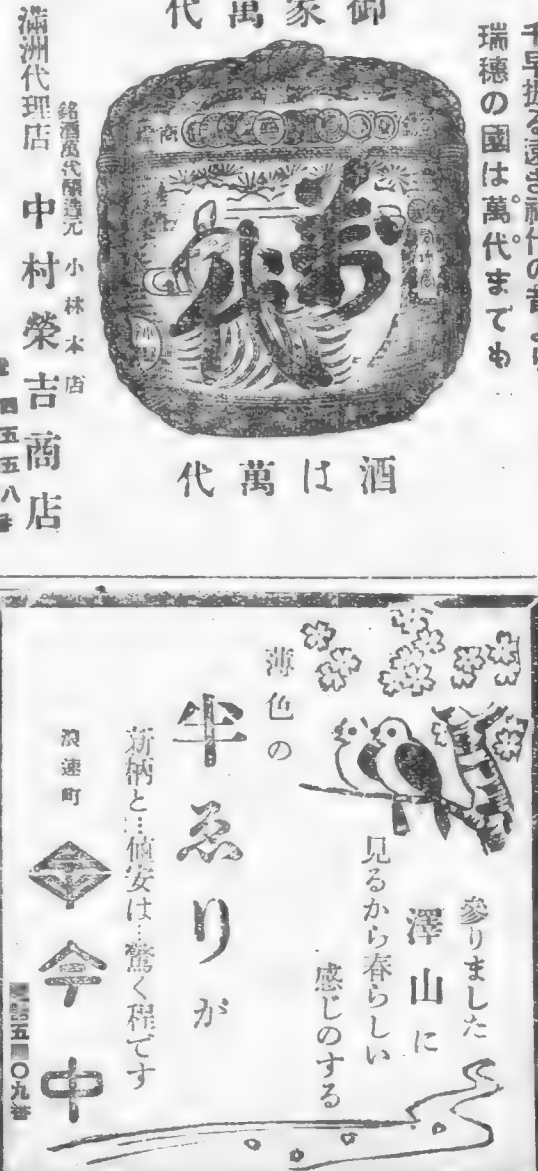 千早振る遠き神代の昔より
瑞穗の國は萬代までも
御家萬代
萬代
酒は萬代
銘酒萬代釀造元 小林本店
滿洲代理店 中村榮吉商店
四五五八番
參りました
澤山に
見るから春らしい
感じのする
薄色の
半ゑりが
新柄と…値安は…驚く程です
浪速町
今中